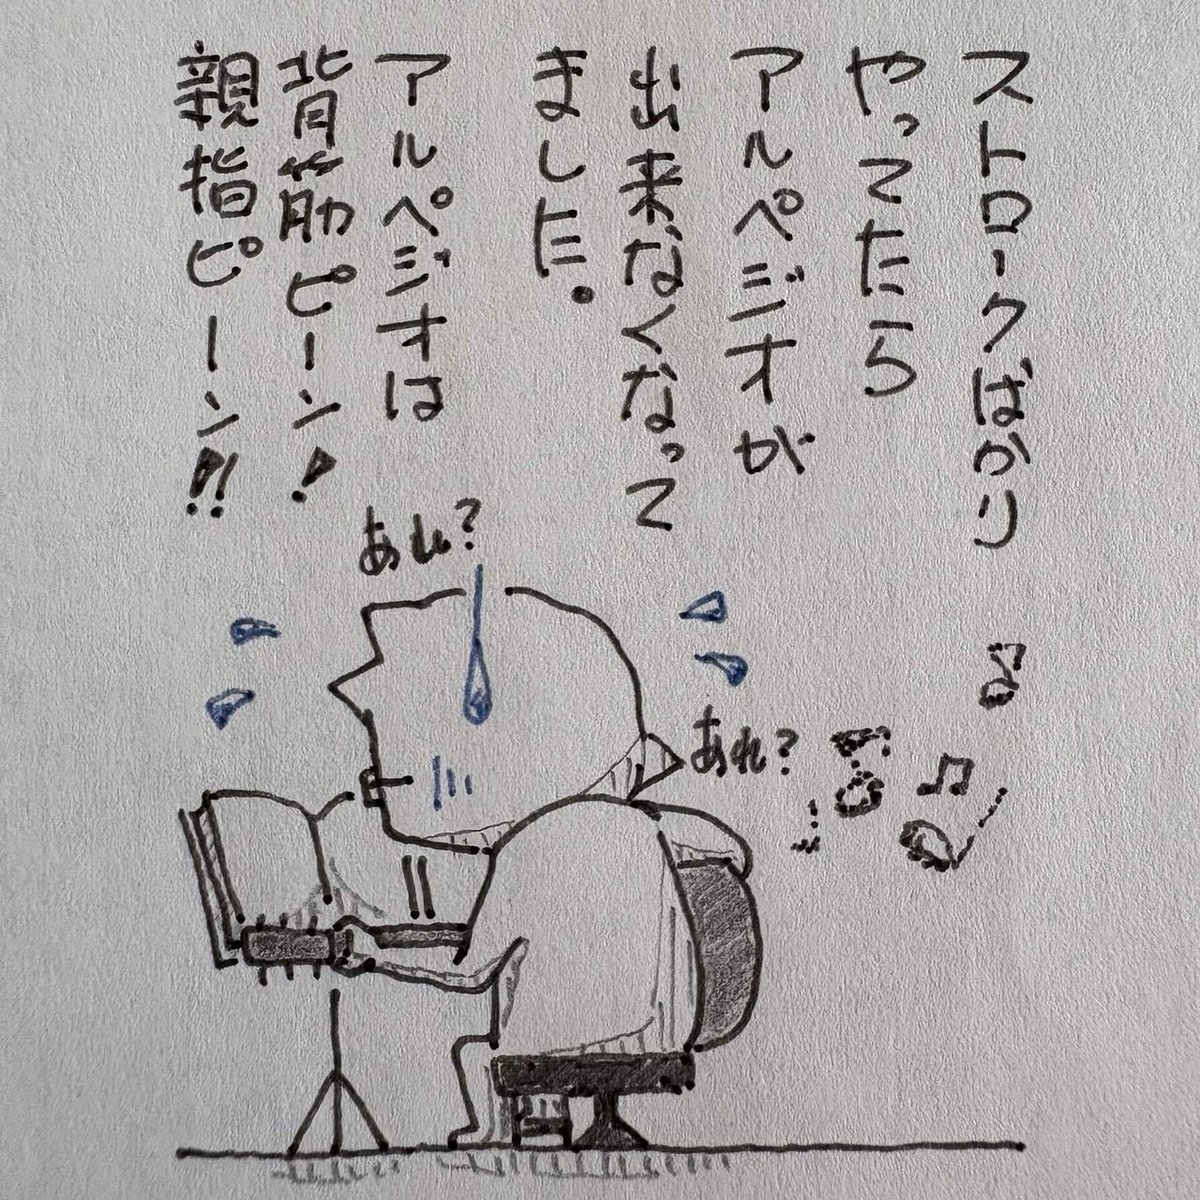 ストロークばかり
やってたら
アルペジオが
出来なくなって
ました。
アルペジオは
背筋ピーン!
親指ピーン!!
あれ?
あれ?